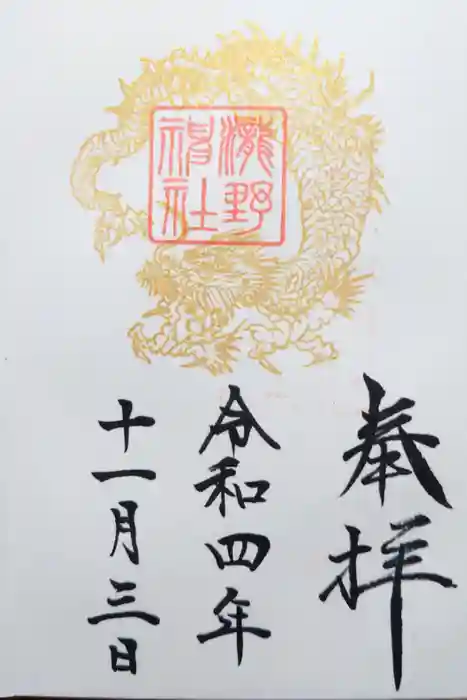 奉拝
令和四年
十一月三日
瀧野
神社